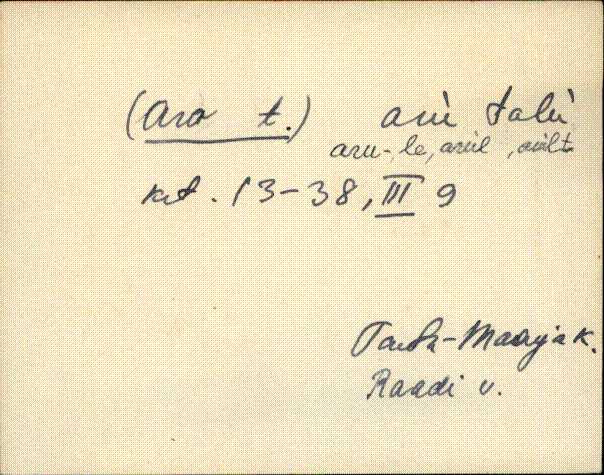 (Aro t.) aru̬ talu̬
aru-, le, arul, arult
krt. 13-38, III 9
Tartu-Maarja k.
Raadi v.